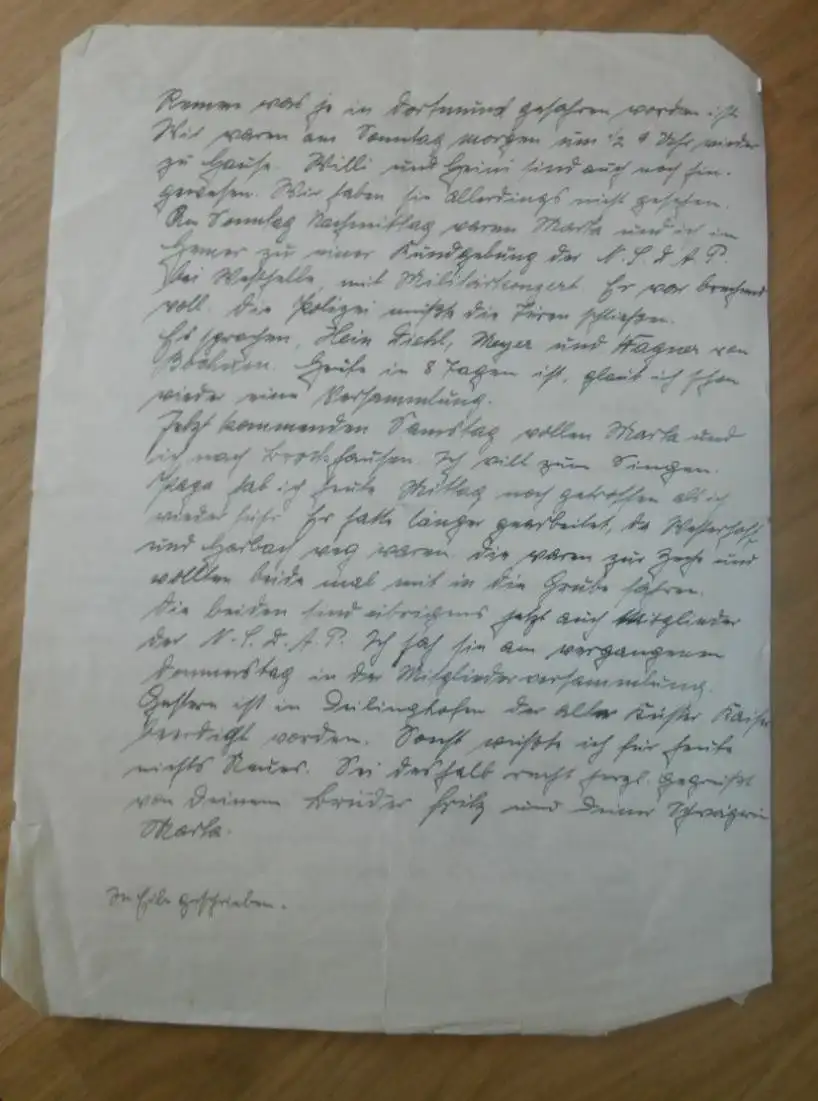 Rennen was je in Dortmund gefahren worden ist
Wir waren am Sonntag morgen um 1/2 9 Uhr wieder
zu Hause. Willi und Heini sind auch noch hin-
gewesen. Wir haben sie allerdings nicht gesehen.
Am Sonntag Nachmittag waren Marta und ich in
Hemer zu einer Kundgebung der N.S.D.A.P.
bei Westhelle, mit Militärkonzert. Er war brechend
voll. Die Polizei mußte die Türen schließen.
Es sprachen, Hein Diehl, Meyer und Wagner von
Bochum. Heute in 8 Tagen ist, glaub ich schon
wieder eine Versammlung.
Jetzt kommenden Samstag wollen Marta und
ich nach Brockhausen. Ich will zum Singen.
Papa hab ich heute Mittag noch getroffen als ich
wieder fuhr. Er hatte länger gearbeitet, da
und Harbach weg waren. Die waren zur Zeche und
wollten beide mal mit in die Grube fahren.
Die beiden sind übrigens jetzt auch Mitglieder
der N.S.D.A.P. Ich sah sie am vergangenen
Donnerstag in der Mitgliederversammlung.
Gestern ist in Deilinghofen der alte Küster Kaiser
beerdigt worden. Sonst wüßte ich für heute
nichts Neues. Sei deshalb recht herzl. gegrüßt
von Deinem Bruder Fritz und Deiner Schwägerin
Marta.
In Eile geschrieben.